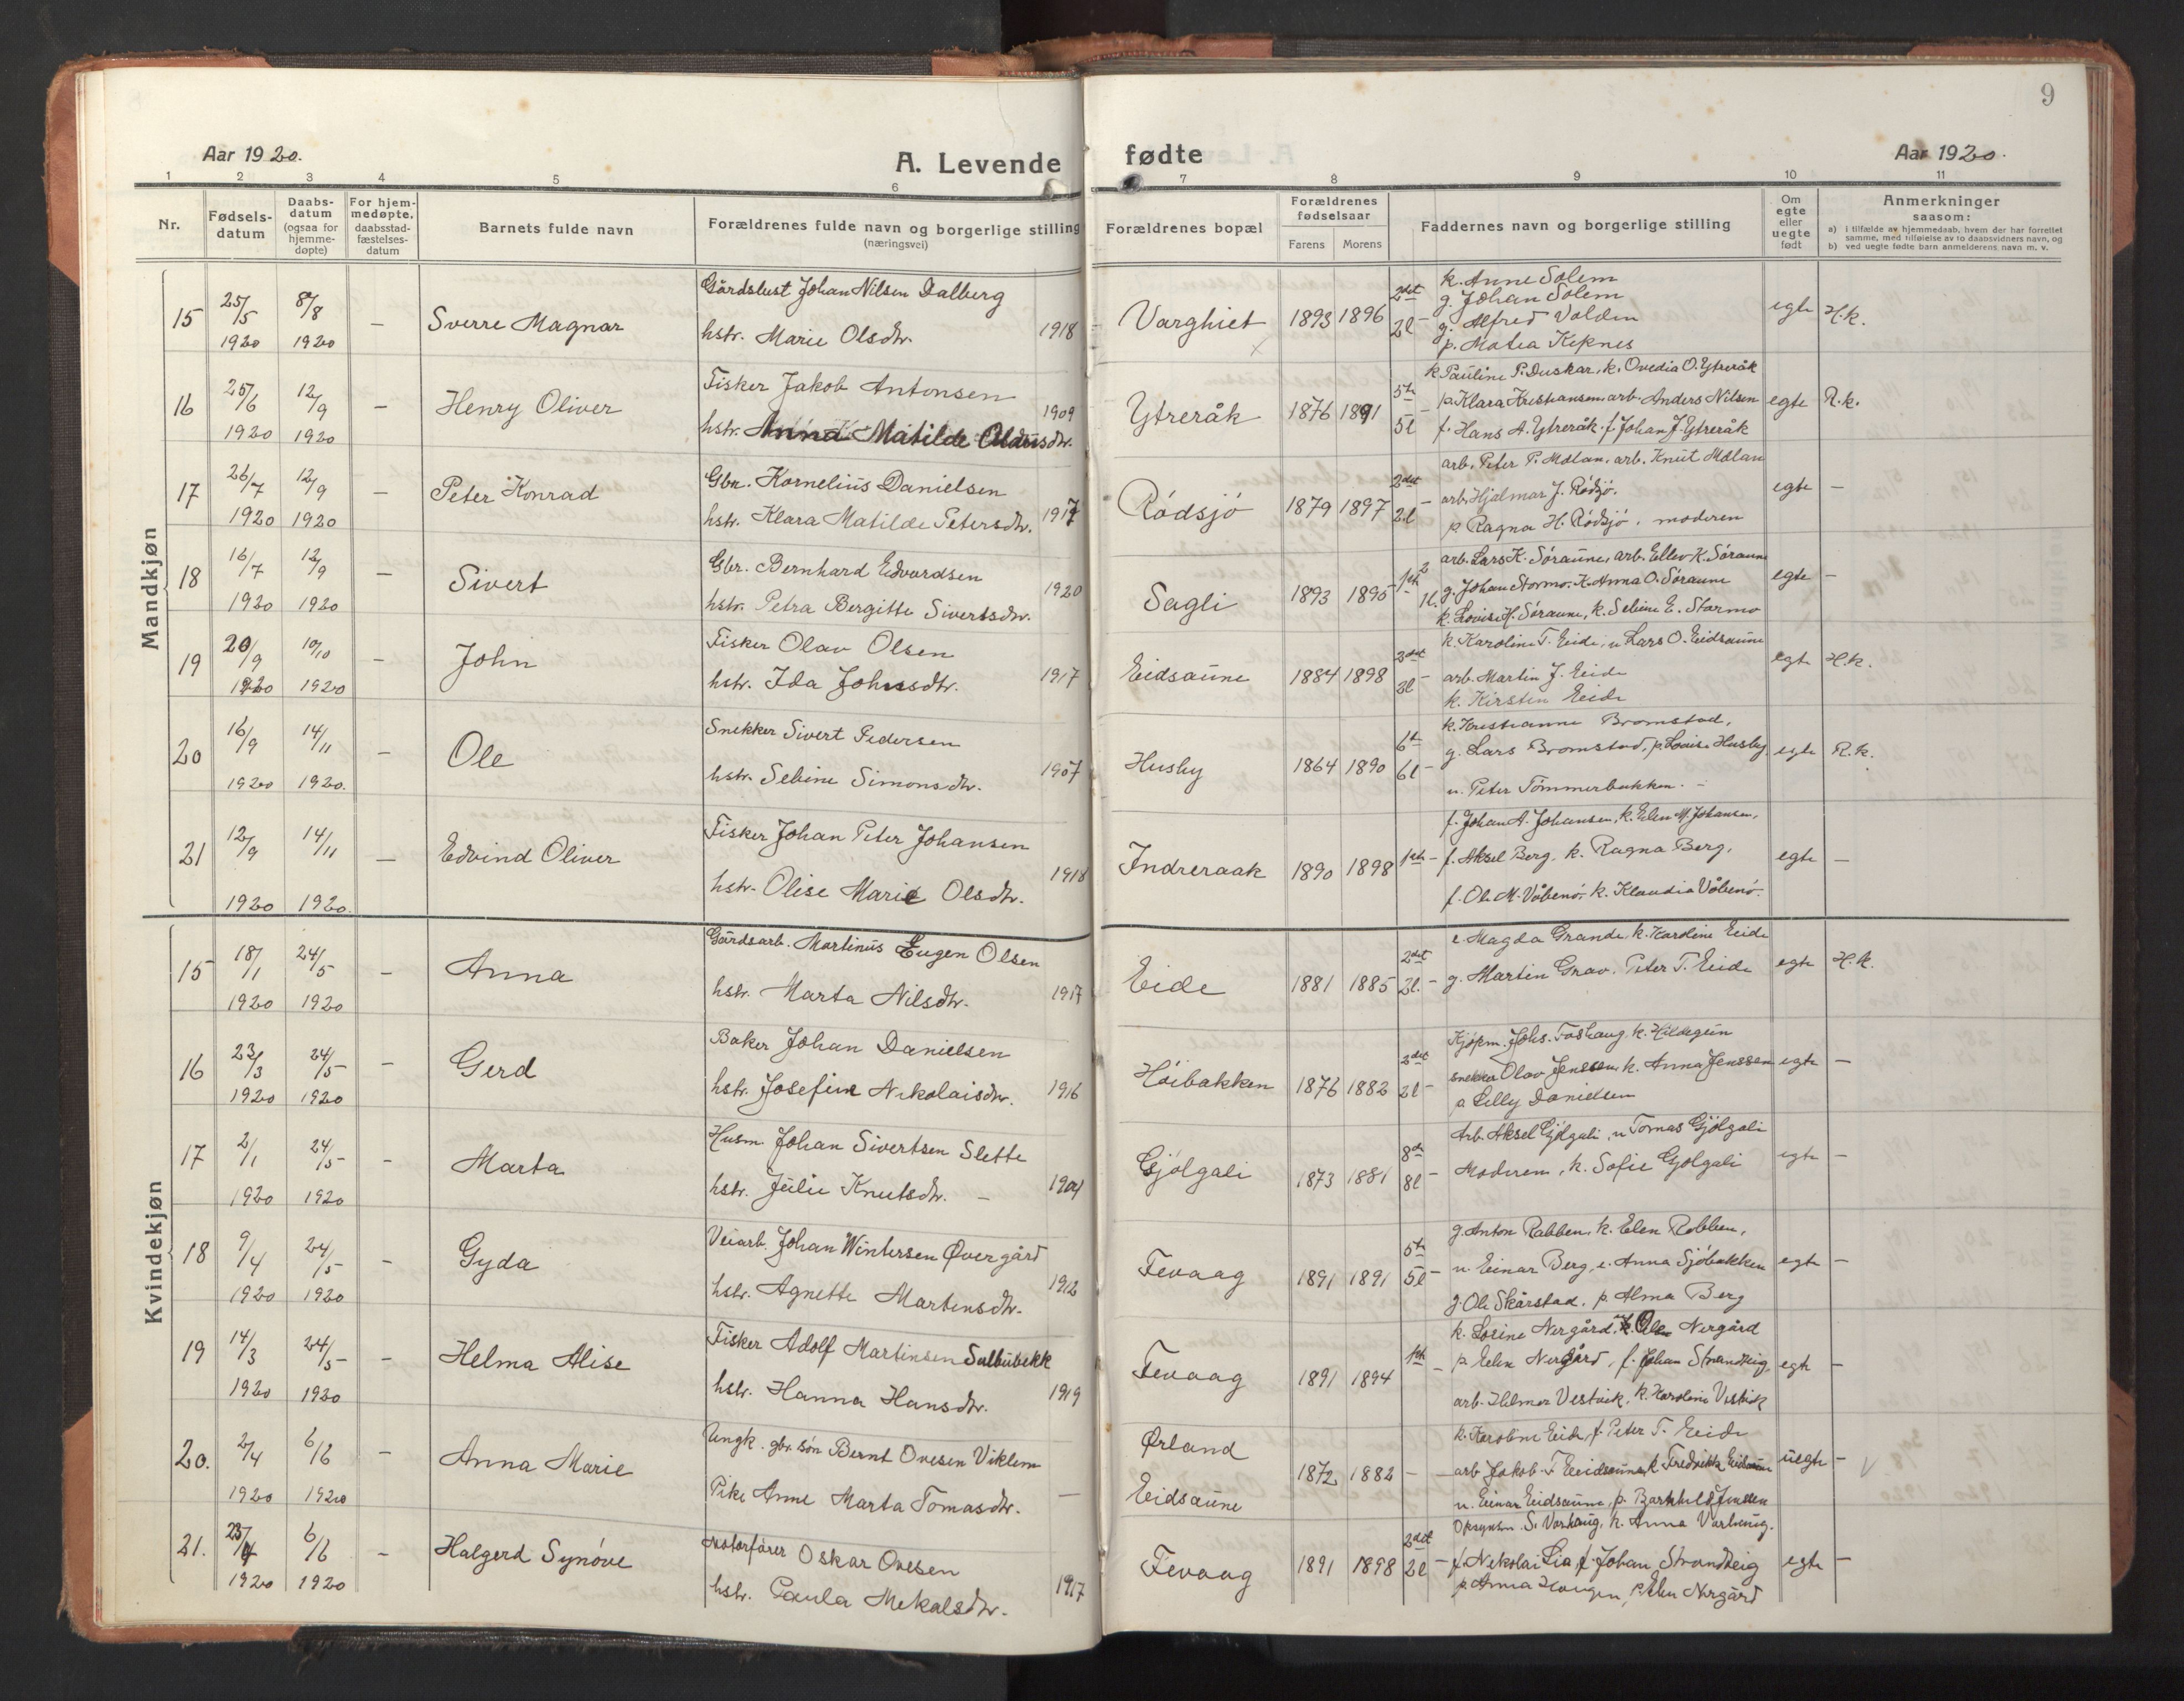 9
Aar 1920.
A. Levende fødte
Aar 1920.
1 2 3 4 5 6 7 8 9 10 11
Nr.
Fødsels-datum
Daabs-datum (ogsaa for hjemme-døpte)
For hjem-medøpte, daabsstad-fæstelses-datum
Barnets fulde navn
Forældrenes fulde navn og borgerlige stilling (næringsvei)
Forældrenes bopæl
Forældrenes fødselsaar
Farens Morens
Faddernes navn og borgerlige stilling
Om egte eller uegte født
Anmerkninger saasom:
a) i tilfælde av hjemmedaab, hvem der har forrettet samme, med tilføielse av to daabsvidners navn, og
b) ved uegte fødte barn anmelderens navn m. v.
Mandkjøn
15 25/5 1920 8/8 1920 – Sverre Magnar
Johan Nilsen Dalberg
hstr. Marie Olsdtr. 1918
Varghiet 1893 1896 2det 2l –
k. Anne Solem
g. Johan Solem
g. Alfred Volden
p. Matea
egte H.k.
16 25/6 1920 12/9 1920 – Henry Oliver
Fisker Jakob Antonsen
hstr. Anna Matilde 1909
Ytreråk 1876 1891 5te 5l –
k. Pauline P. Duskar, k. Ovedia O. Ytreråk
p. Klara Kristiansen, arb. Anders Nilsen
f. Hans A. Ytreråk, f. Johan J. Ytreråk
egte R.k.
17 26/7 1920 12/9 1920 – Peter Konrad
Gbr. Kornelius Danielsen
hstr. Klara Matilde Petersdtr. 1917
Rødsjø 1879 1897 2det 2l –
arb. Peter P. Mølan, arb. Knut Mølan
arb. Hjalmar J. Rødsjø.
p. Ragna H. Rødsjø, moderen
egte –
18 16/7 1920 12/9 1920 – Sivert
Gbr. Bernhard Edvardsen
hstr. Petra Bergitte Sivertsdtr. 1920
Sagli 1893 1895 1ste 1l.
arb. Lars K. Søraune, arb. Ellev K. Søraune
g. Johan Stormo, k. Anna O. Søraune
k. Lovise H. Søraune, k. Seline E. Stormo
egte –
19 20/9 1920 10/10 1920 – John
Fisker Olav Olsen
hstr. Ida Johnsdtr. 1917
Eidsaune 1884 1898 3det 3l –
k. Karoline T. Eide, u. Lars O. Eidsaune
arb. Martin J. Eide
k. Kirsten Eide
egte H.k.
20 16/9 1920 14/11 1920. – Ole
Snekker Sivert Pedersen
hstr. Seline Simonsdtr. 1907
Husby 1864 1890 6te 6l –
k. Kristianne Bromstad,
g. Lars Bromstad, p. Lovise Husby
u. Peter Tømmerbakken. –
egte R.k.
21 12/9 1920 14/11 1920. – Edvind Oliver
Fisker Johan Peter Johansen
hstr. Olise Marie Olsdtr. 1918
Indreraak 1890 1898 1ste –
f. Johan A. Johansen, k. Elen M. Johansen,
f. Aksel Berg, k. Ragna Berg,
f. Ole M. Våbenø, k. Klaudia Våbenø.
egte –
Kvindekjøn
15 18/1 1920 24/5 1920 – Anna
Gårdsarb. Martinus Eugen Olsen
hstr. Marta Nilsdtr. 1917
Eide 1881 1885 2det 2l. –
e. Magda Grande, k. Karoline Eide
g. Martin Grav, Peter T. Eide
egte H.k.
16 23/3 1920 24/5 1920 – Gerd
Baker Johan Danielsen
hstr. Josefine Nikolaisdtr. 1916
Høibakken 1876 1882 2det 2l –
Kjøpm. Johs. Foshaug, k. Hildegun
snekker Olav Jenssen, k. Anna Jenssen
p. Lilly Danielsen
egte –
17 2/1 1920 24/5 1920 – Marta
Husm. Johan Sivertsen Slette
hstr. Julie Knutsdtr. – 1904
Gjølgali 1873 1881 8de 8l –
Arb. Aksel Gjølgali, u. Tomas Gjølgali
Moderen, k. Sofie Gjølgali
egte –
18 9/4 1920 24/5 1920 – Gyda
Veiarb. Johan Wintersen Øvergård
hstr. Agnette Martensdtr. 1912
Fevaag 1891 1891 5te 5l –
g. Anton Rabben, k. Elen Rabben,
u. Einar Berg, e. Anna Sjøbakken
g. Ole Skårstad, p. Alma Berg
egte –
19 14/3 1920 24/5 1920 – Helma Alise
Fisker Adolf Martinsen Sulbubekk
hstr. Hanna Hansdtr. 1919
Fevaag 1891 1894 1ste –
k. Losine Nergård, Nergård
p. Elen Nergård, f. Johan Strandheig,
arb. Helmer Vestvik, k. Karoline Vestvik
egte –
20. 2/4 1920 6/6 1920 – Anna Marie
Ungk. gbr. søn Bernt Ovesen Viklem
Pike Anne Marta Tomasdtr. –
Ørland
Eidsaune 1872 1882 – –
k. Karoline Eide, f. Peter T. Eide
arb. Jakob T. Eeidsaune, k. Fredrikke Eidsaune
u. Einar Eidsaune, p.
uegte –
21. 23/4 1920 6/6 1920 – Halgerd Synøve
Motorfører Oskar Ovesen
hstr. Paula Mekalsdtr. 1917
Fevaag 1891 1898 2det 2l –
Opsynsm. S. Varhaug, k. Anna Varhaug.
f. Nikolai Lia, f. Johan Strandheig
p. Anna Haugen, p. Elen Nergård
egte –